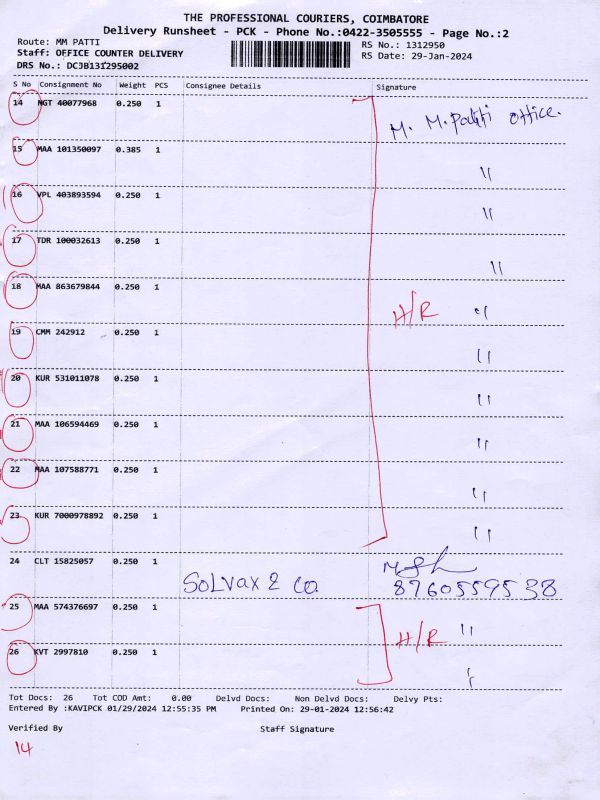 THE PROFESSIONAL COURIERS, COIMBATORE
Delivery Runsheet - PCK - Phone No.:0422-3505555 - Page No.:2
Route: MM PATTI
Staff: OFFICE COUNTER DELIVERY
DRS No.: DCJB131295002
RS No.: 1312950
RS Date: 29-Jan-2024
S No Consignment No Weight PCS Consignee Details Signature
14 NGT 40077968 0.250 1 M. M.Patti office.
15 MAA 101350097 0.385 1 〃
16 VPL 403893594 0.250 1 〃
17 TDR 100032613 0.250 1 〃
18 MAA 863679844 0.250 1 H/R 〃
19 CMM 242912 0.250 1 〃
20 KUR 531011078 0.250 1 〃
21 MAA 106594469 0.250 1 〃
22 MAA 107588771 0.250 1 〃
23 KUR 7000978892 0.250 1 〃
24 CLT 15825057 0.250 1
SOLVAX 2 CO 8760559538
25 MAA 574376697 0.250 1 H/R 〃
26 KVT 2997810 0.250 1 〃
Tot Docs: 26 Tot COD Amt: 0.00 Delvd Docs: Non Delvd Docs: Delvy Pts:
Entered By :KAVIPCK 01/29/2024 12:55:35 PM Printed On: 29-01-2024 12:56:42
Verified By Staff Signature
14